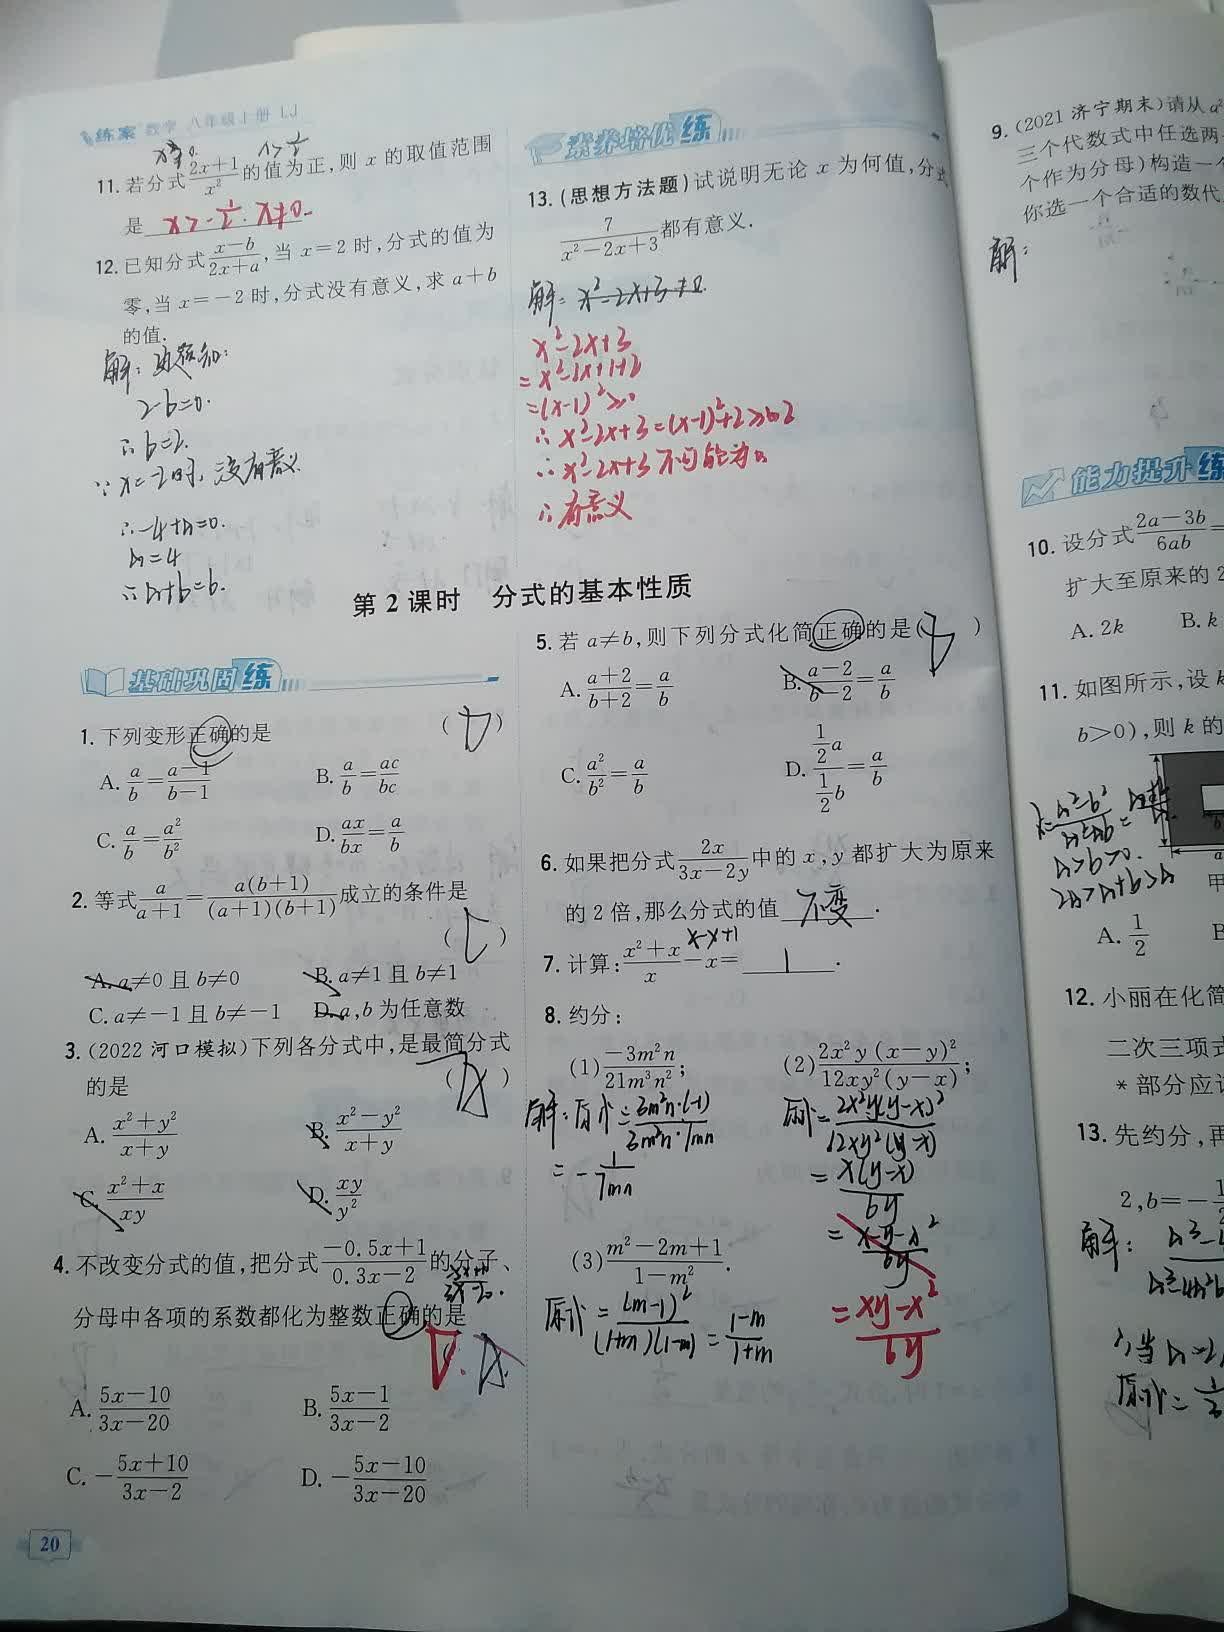 练案 数学 八年级上册 LJ
11. 若分式(2x+1)/x²的值为正,则 x 的取值范围
是 x>-1/2. x≠0.
12. 已知分式(x-b)/(2x+a),当 x=2 时,分式的值为
零,当 x=-2 时,分式没有意义,求 a+b
的值.
解:
2-b=0.
∴b=2.
∵x=-2时,没有意义
∴-4+a=0.
a=4
∴a+b=6.
素养培优练
13. (思想方法题)试说明无论 x 为何值,分式
7/(x²-2x+3)都有意义.
解: x²-2x+3≠0.
x²-2x+3
=x²-2x+1+2
=(x-1)²≥0
∴x²-2x+3=(x-1)²+2≥2
∴x²-2x+3不可能为0
∴有意义
第 2 课时 分式的基本性质
基础巩固练
1. 下列变形正确的是 (D)
A. a/b=(a-1)/(b-1) B. a/b=ac/bc
C. a/b=a²/b² D. ax/bx=a/b
2. 等式a/(a+1)=a(b+1)/((a+1)(b+1))成立的条件是
(C)
A. a≠0 且 b≠0 B. a≠1 且 b≠1
C. a≠-1 且 b≠-1 D. a,b 为任意数
3. (2022 河口模拟)下列各分式中,是最简分式
的是 (A)
A. (x²+y²)/(x+y) B. (x²-y²)/(x+y)
C. (x²+x)/xy D. xy/y²
4. 不改变分式的值,把分式(-0.5x+1)/(0.3x-2)的分子、
分母中各项的系数都化为整数正确的是
D. A.
A. (5x-10)/(3x-20) B. (5x-1)/(3x-2)
C. -(5x+10)/(3x-2) D. -(5x-10)/(3x-20)
20
5. 若 a≠b,则下列分式化简正确的是(D)
A. (a+2)/(b+2)=a/b B. (a-2)/(b-2)=a/b
C. a²/b²=a/b D. (1/2 a)/(1/2 b)=a/b
6. 如果把分式2x/(3x-2y)中的 x,y 都扩大为原来
的 2 倍,那么分式的值 不变 .
x-x+1
7. 计算:(x²+x)/x-x= 1 .
8. 约分:
(1)-3m²n/21m³n²; (2)2x²y(x-y)²/12xy²(y-x);
解:原式=3m²n·(-1)/3m²n·7mn
=-1/7mn
原式=2x²y(y-x)²/12xy²(y-x)
=x(y-x)/6y
=xy-x²/6y
=xy-x²/6y
(3)(m²-2m+1)/(1-m²).
原式=(m-1)²/(1+m)(1-m)=(1-m)/(1+m)
9. (2021 济宁期末)请从 a²
三个代数式中任选两
个作为分母)构造一个
你选一个合适的数代
解:
能力提升练
10. 设分式(2a-3b)/6ab=
扩大至原来的 2
A. 2k B. k
11. 如图所示,设 k
b>0),则 k 的
a>b>0.
2a>a+b>a
甲
A. 1/2 B
12. 小丽在化简
二次三项式
*部分应该
13. 先约分,再
2,b=-1/
解:
∴当a=2,
原式=